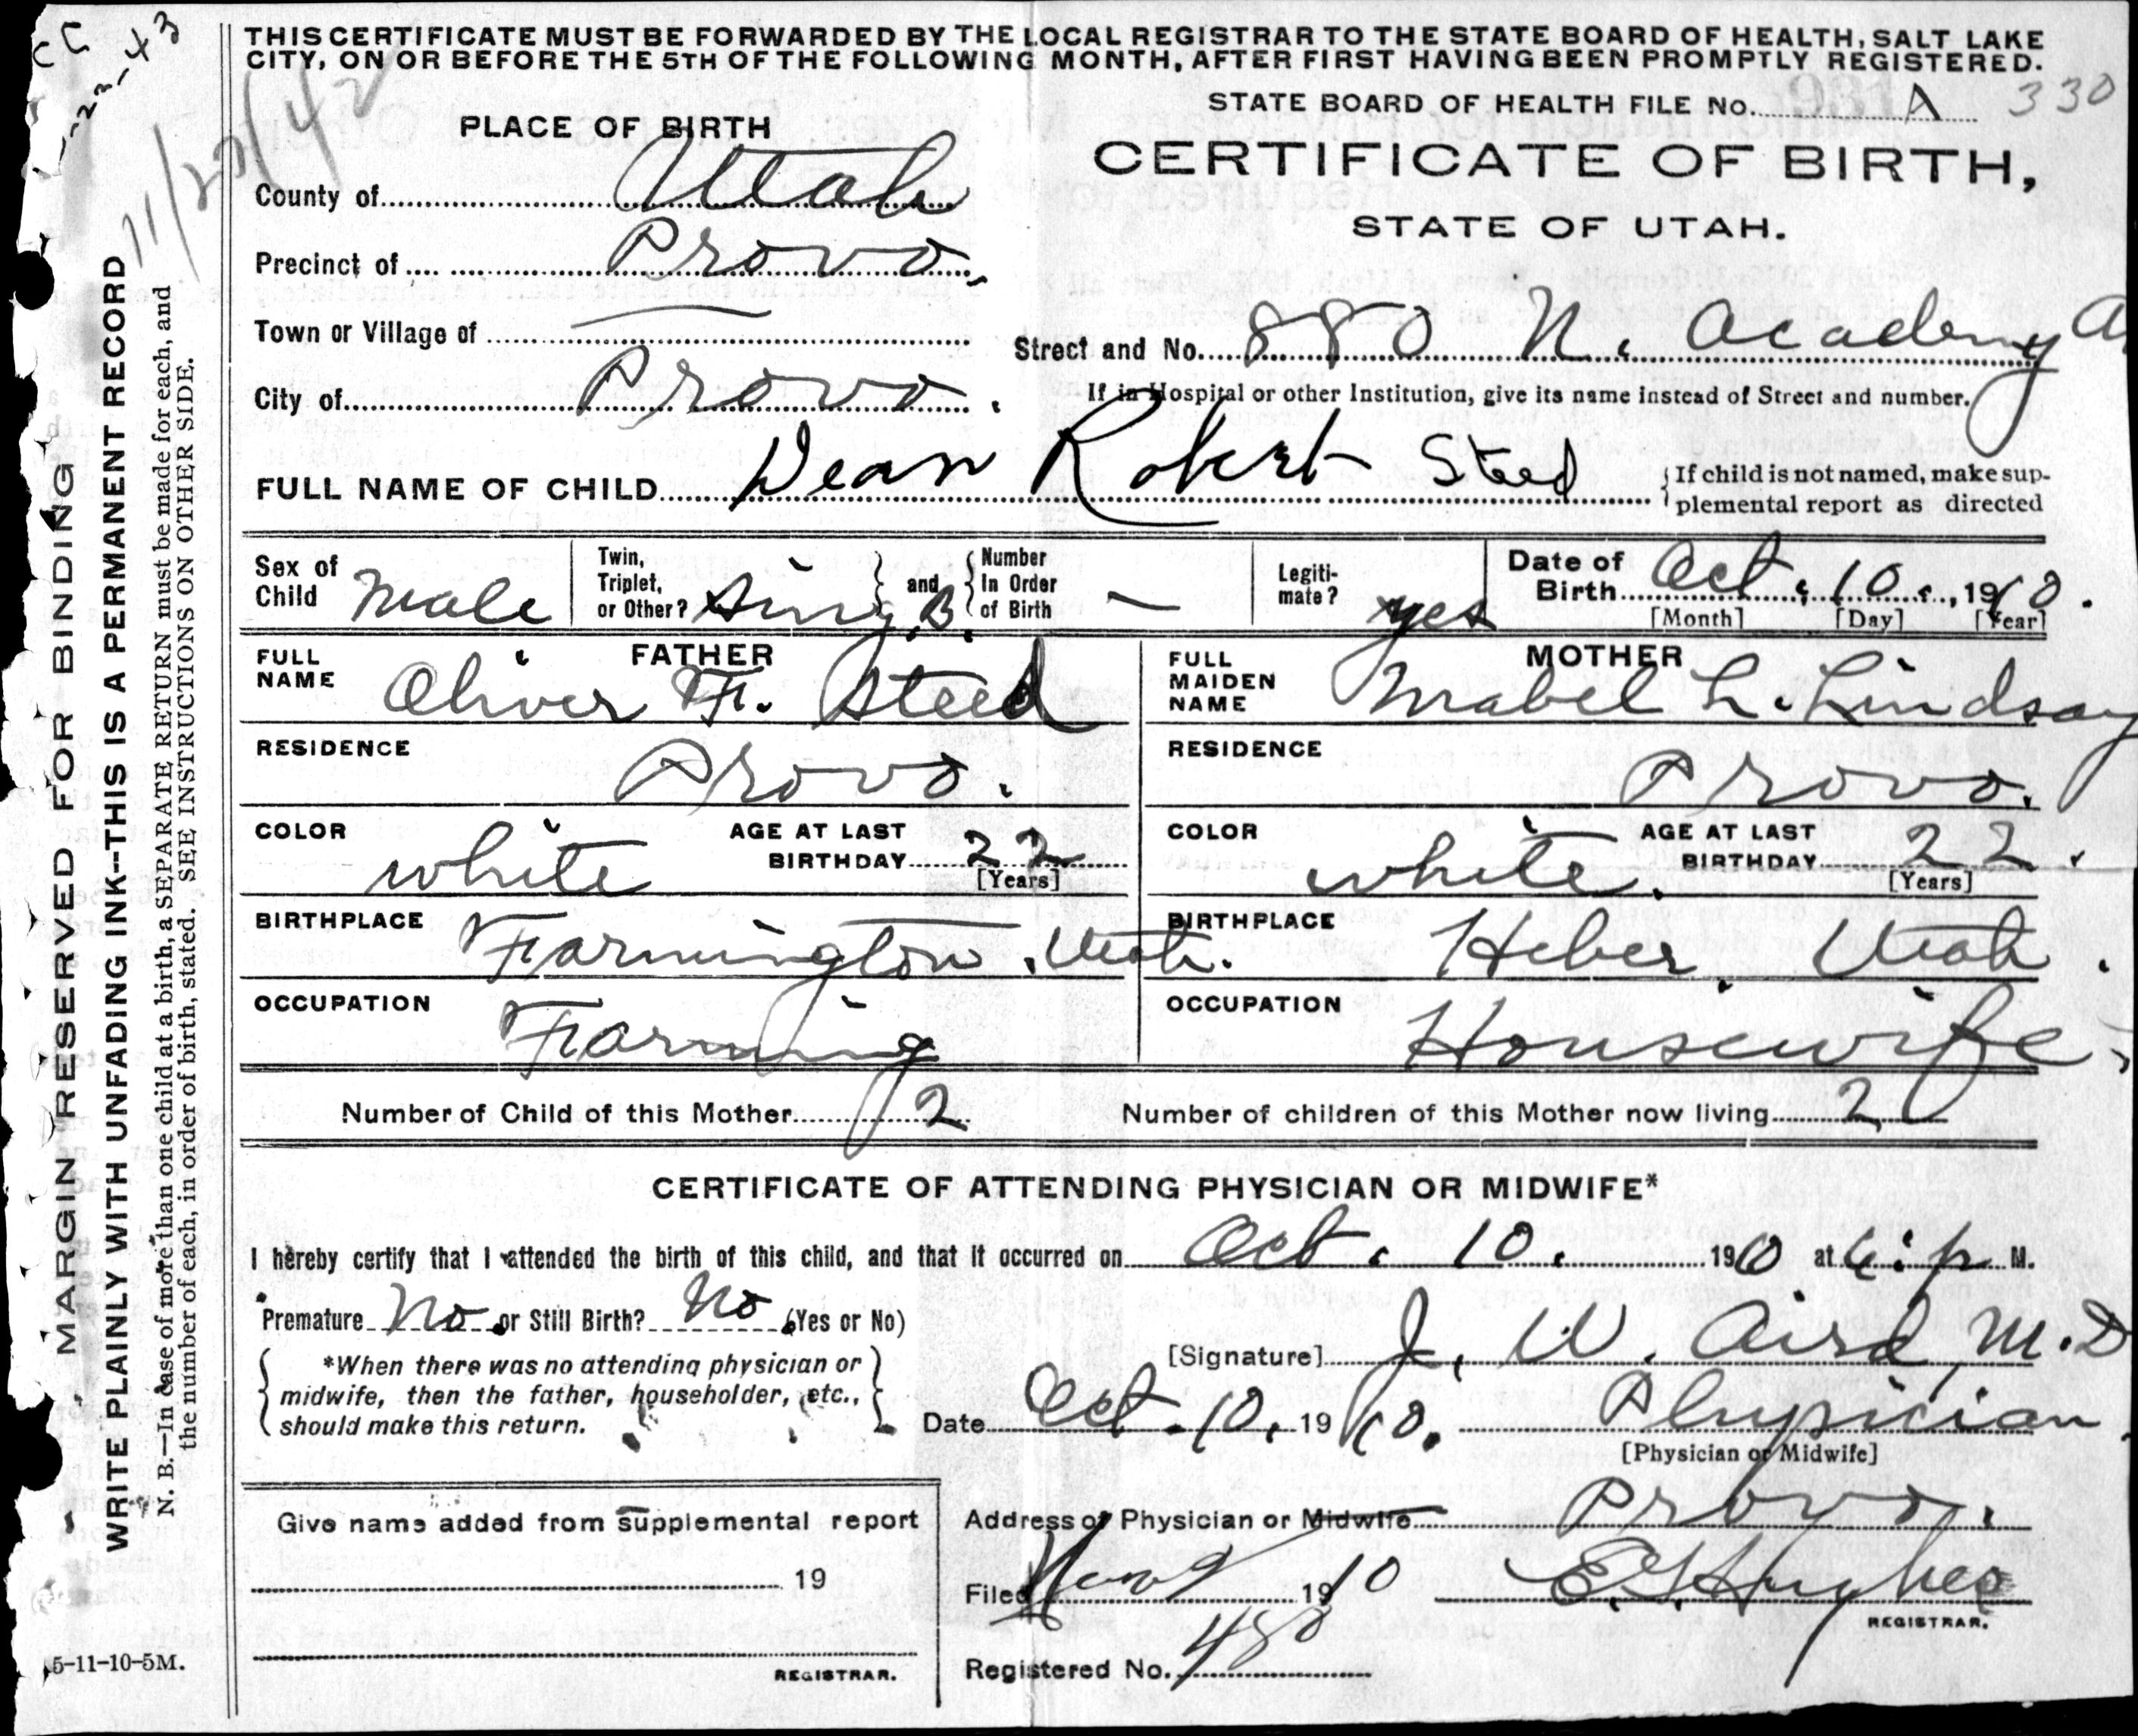 THIS CERTIFICATE MUST BE FORWARDED BY THE LOCAL REGISTRAR TO THE STATE BOARD OF HEALTH, SALT LAKE
CITY, ON OR BEFORE THE 5TH OF THE FOLLOWING MONTH, AFTER FIRST HAVING BEEN PROMPTLY REGISTERED.
STATE BOARD OF HEALTH FILE No. 931 A 330
11/23/42
PLACE OF BIRTH
CERTIFICATE OF BIRTH,
STATE OF UTAH.
County of Utah
Precinct of Provo
Town or Village of
Street and No. 880 N. Academy A
City of Provo.
If in Hospital or other Institution, give its name instead of Street and number.
FULL NAME OF CHILD Dean Robert Steed
If child is not named, make sup-
plemental report as directed
Sex of Child Male
Twin, Triplet, or Other? Sing. B.
and Number In Order of Birth —
Legiti-mate? yes
Date of Birth Oct. 10., 1910.
[Month] [Day] [Year]
FATHER
FULL NAME Oliver F. Steed
MOTHER
FULL MAIDEN NAME Mabel L. Lindsay
RESIDENCE Provo.
RESIDENCE Provo.
COLOR white AGE AT LAST BIRTHDAY 22 [Years]
COLOR white. AGE AT LAST BIRTHDAY 22. [Years]
BIRTHPLACE Farmington, Utah.
BIRTHPLACE Heber, Utah.
OCCUPATION Farming
OCCUPATION Housewife
Number of Child of this Mother 2
Number of children of this Mother now living 2
CERTIFICATE OF ATTENDING PHYSICIAN OR MIDWIFE*
I hereby certify that I attended the birth of this child, and that it occurred on Oct. 10. 1910 at 6:p M.
Premature No or Still Birth? No (Yes or No)
[Signature] J. W. Aird, M.D
*When there was no attending physician or
midwife, then the father, householder, etc.,
should make this return.
Date Oct. 10, 1910. Physician
[Physician or Midwife]
Give name added from supplemental report
19
REGISTRAR.
Address of Physician or Midwife Provo.
Filed Nov 9 1910 E.G. Hughes
REGISTRAR.
Registered No. 480
MARGIN RESERVED FOR BINDING
WRITE PLAINLY WITH UNFADING INK--THIS IS A PERMANENT RECORD
N. B.—In case of more than one child at a birth, a SEPARATE RETURN must be made for each, and
the number of each, in order of birth, stated. SEE INSTRUCTIONS ON OTHER SIDE.
5-11-10-5M.